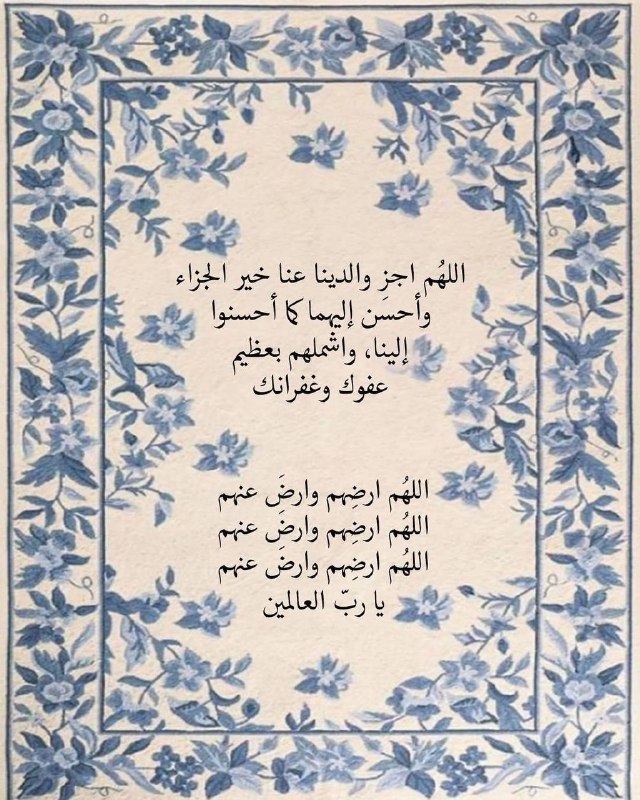 اللهُم اجزِ والدينا عنا خير الجزاء
وأحسَن إليهما كما أحسنوا
إلينا، واشملهم بعظيم
عفوك وغفرانك
اللهُم ارضِهم وارضَ عنهم
اللهُم ارضِهم وارضَ عنهم
اللهُم ارضِهم وارضَ عنهم
يا ربّ العالمين